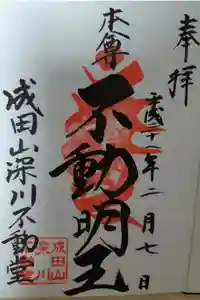 奉拝
平成二十一年二月七日
本尊
不動明王
成田山深川不動堂
成田山